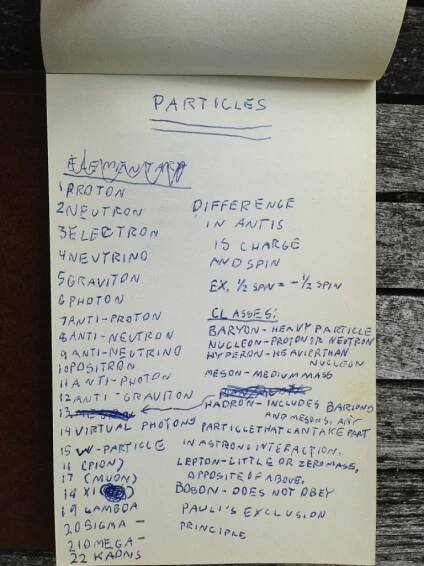 PARTICLES
1 PROTON
2 NEUTRON
3 ELECTRON
4 NEUTRINO
5 GRAVITON
6 PHOTON
7 ANTI-PROTON
8 ANTI-NEUTRON
9 ANTI-NEUTRINO
10 POSITRON
11 ANTI-PHOTON
12 ANTI-GRAVITON
13
14 VIRTUAL PHOTONS
15 W-PARTICLE
16 (PION)
17 (MUON)
18 XI
19 LAMBDA
20 SIGMA -
21 OMEGA -
22 KAONS
DIFFERENCE
IN ANTIS
IS CHARGE
AND SPIN
EX, ½ SPIN = -½ SPIN
CLASSES:
BARYON-HEAVY PARTICLE
NUCLEON-PROTON OR NEUTRON
HYPERON-HEAVIER THAN
NUCLEON
MESON-MEDIUM MASS
HADRON-INCLUDES BARIONS
AND MESONS, ANY
PARTICLE THAT CAN TAKE PART
IN A STRONG INTEFACTION.
LEPTON-LITTLE OR ZERO MASS,
OPPOSITE OF ABOVE.
BOSON-DOES NOT OBEY
PAULI'S EXCLUSION
PRINCIPLE